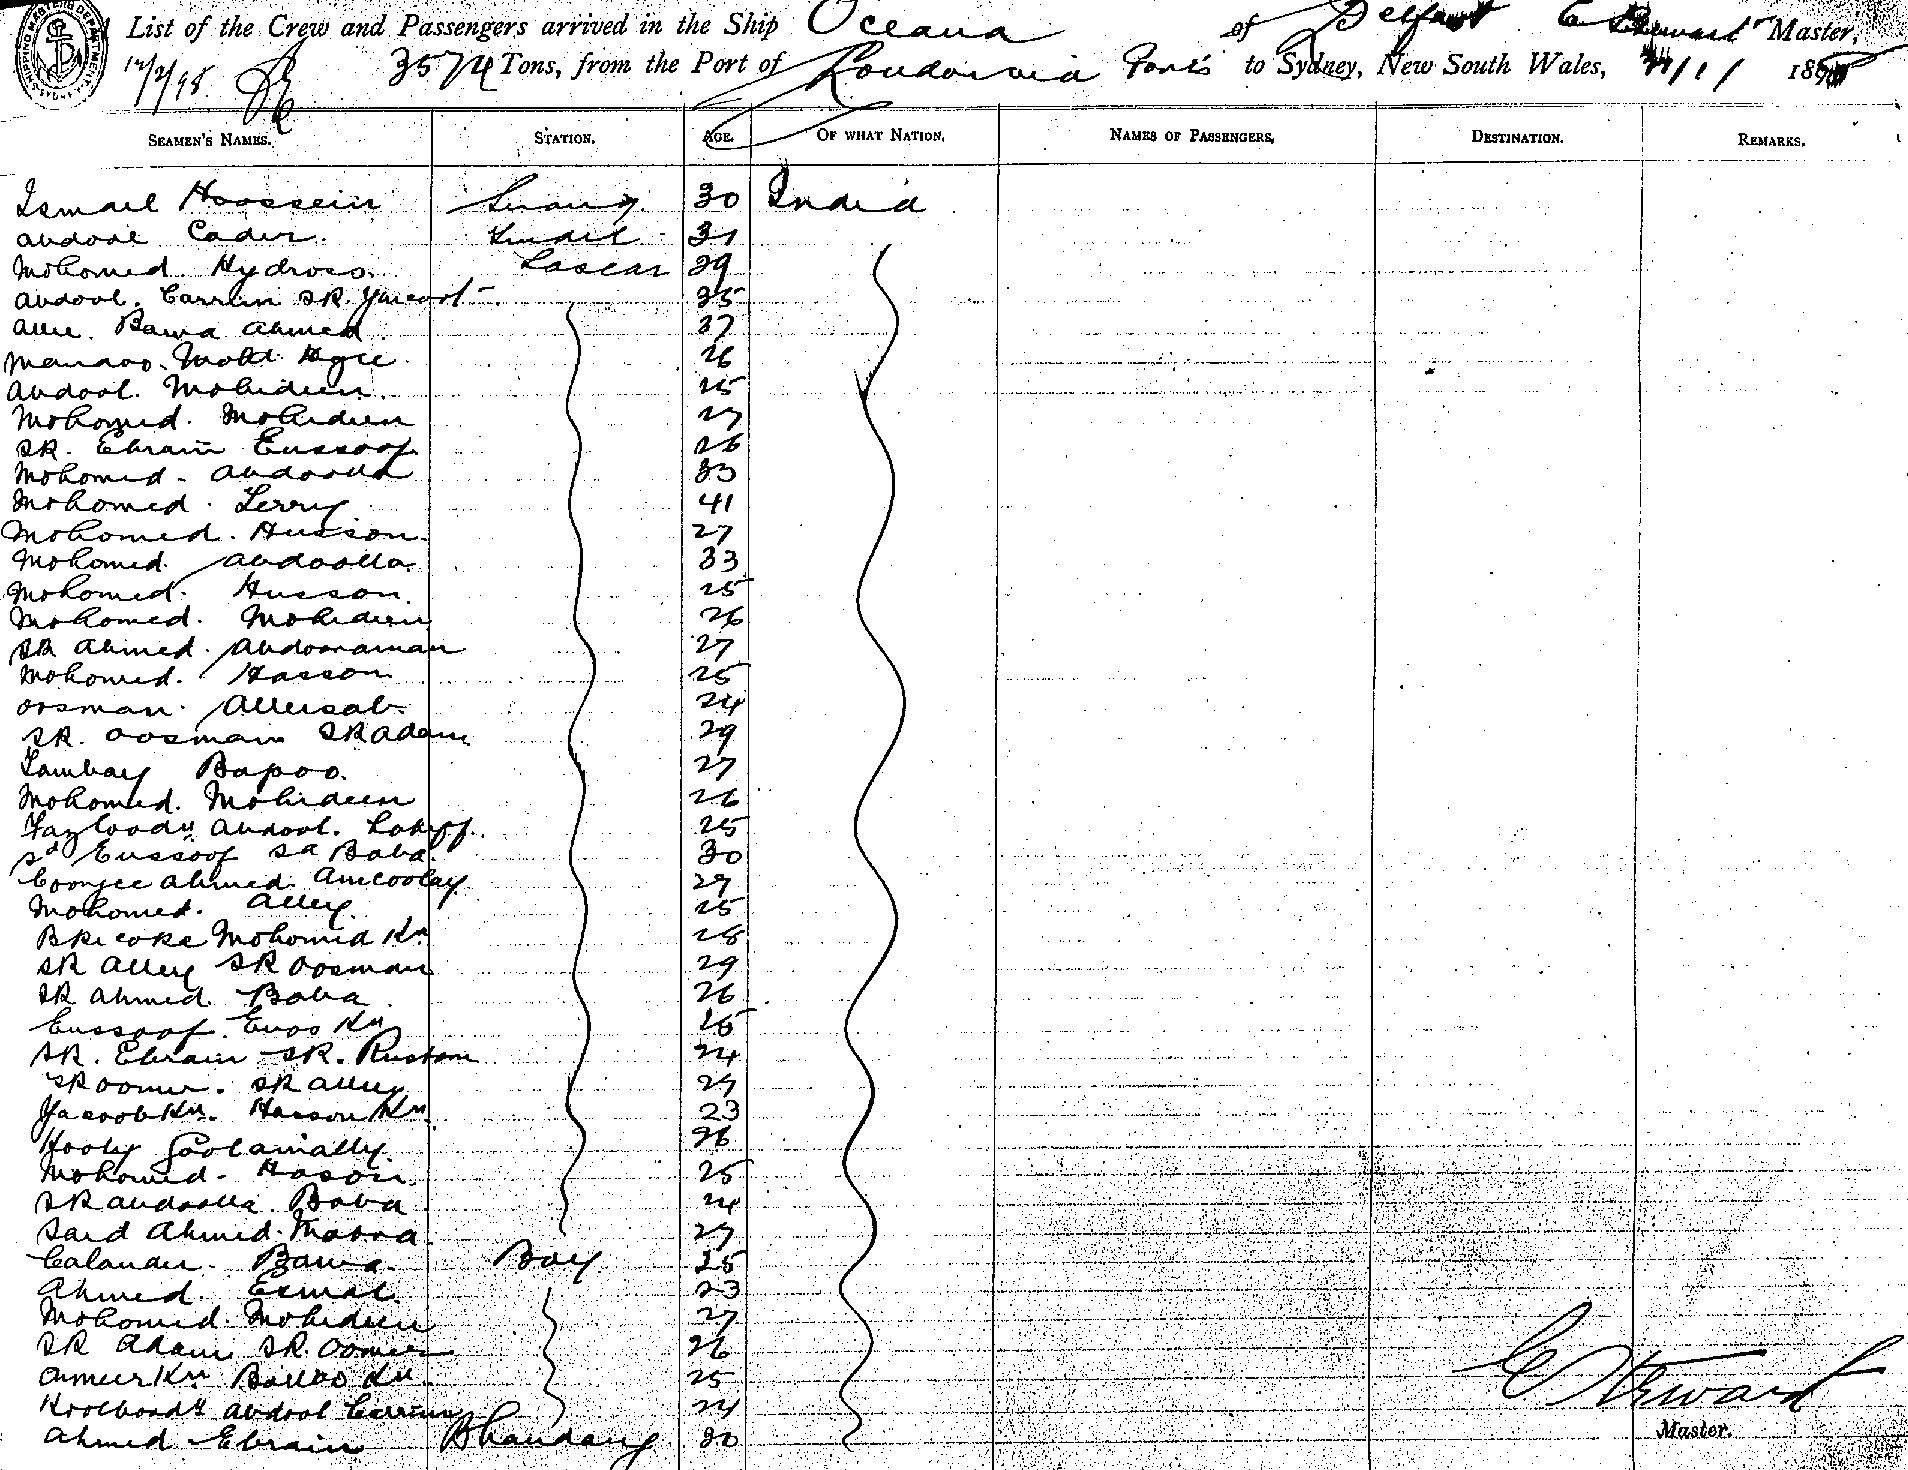 List of the Crew and Passengers arrived in the Ship Oceana of Belfast E Steward Master,
12/2/98 3574 Tons, from the Port of London via Ports to Sydney, New South Wales, 11/ 189
SEAMEN'S NAMES. STATION. AGE. OF WHAT NATION. NAMES OF PASSENGERS. DESTINATION. REMARKS.
Ismael Hoossein Serang 30 India
Abdool Cader Tindel 31
Mohomed Hydroso Lascar 29
Abdool Carrim SR. Yacoob 35
Allie Bawa Ahmed 37
Mohd 26
Abdool Mohideen 25
Mohomed Mohideen 27
SR. Ebraim Eussoof 26
Mohomed Abdoolla 33
Mohomed 41
Mohomed Husson 27
Mohomed Abdoolla 33
Mohomed Husson 25
Mohomed Mohideen 26
SR Ahmed Abdooraman 27
Mohomed Hasson 25
Oosman Alleisab 24
SR. Oosman SR Adam 29
Tambay Bapoo 27
Mohomed Mohideen 26
Abdool 25
Sd Eussoof Sd Baba 30
Ahmed 27
Mohomed Alley 25
Mohomed Kn 28
SR Alley SR Oosman 29
SR Ahmed Baba 26
Eussoof Kn 25
SR. Ebraim SR. Rustom 24
SR Oomer SR Alley 27
Yacoob Kn. Hasson Kn 23
Goolamally 26
Mohomed Hason 25
SR Abdoolla Baba 24
Said Ahmed 27
Calander Bawa Boy 25
Ahmed Esmal 23
Mohomed Mohideen 27
SR Adam SR. Oomer 26
Ameer Kn Kn 25
Abdool Carrim 24
Ahmed Ebraim Bhandary 30
E Steward
Master.